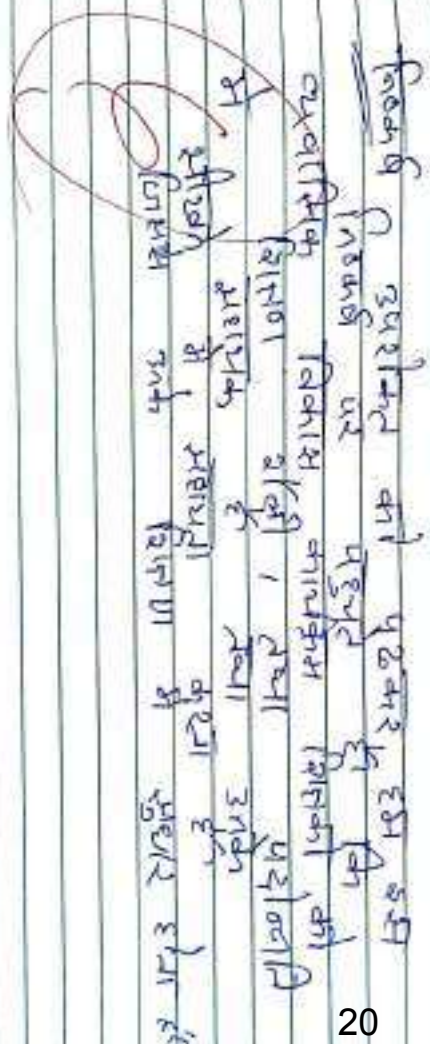 निष्कर्ष उपरोक्त को पढ़कर हम इसी
निष्कर्ष पर पहुंचते हैं कि
व्यावसायिक विकास कार्यक्रम शिक्षको को
शिक्षण शैली, तथा पद्धति
में सहायक है तथा उनके
भी सहायता करता है
जिससे उनके शिक्षण में सुधार होता है
20